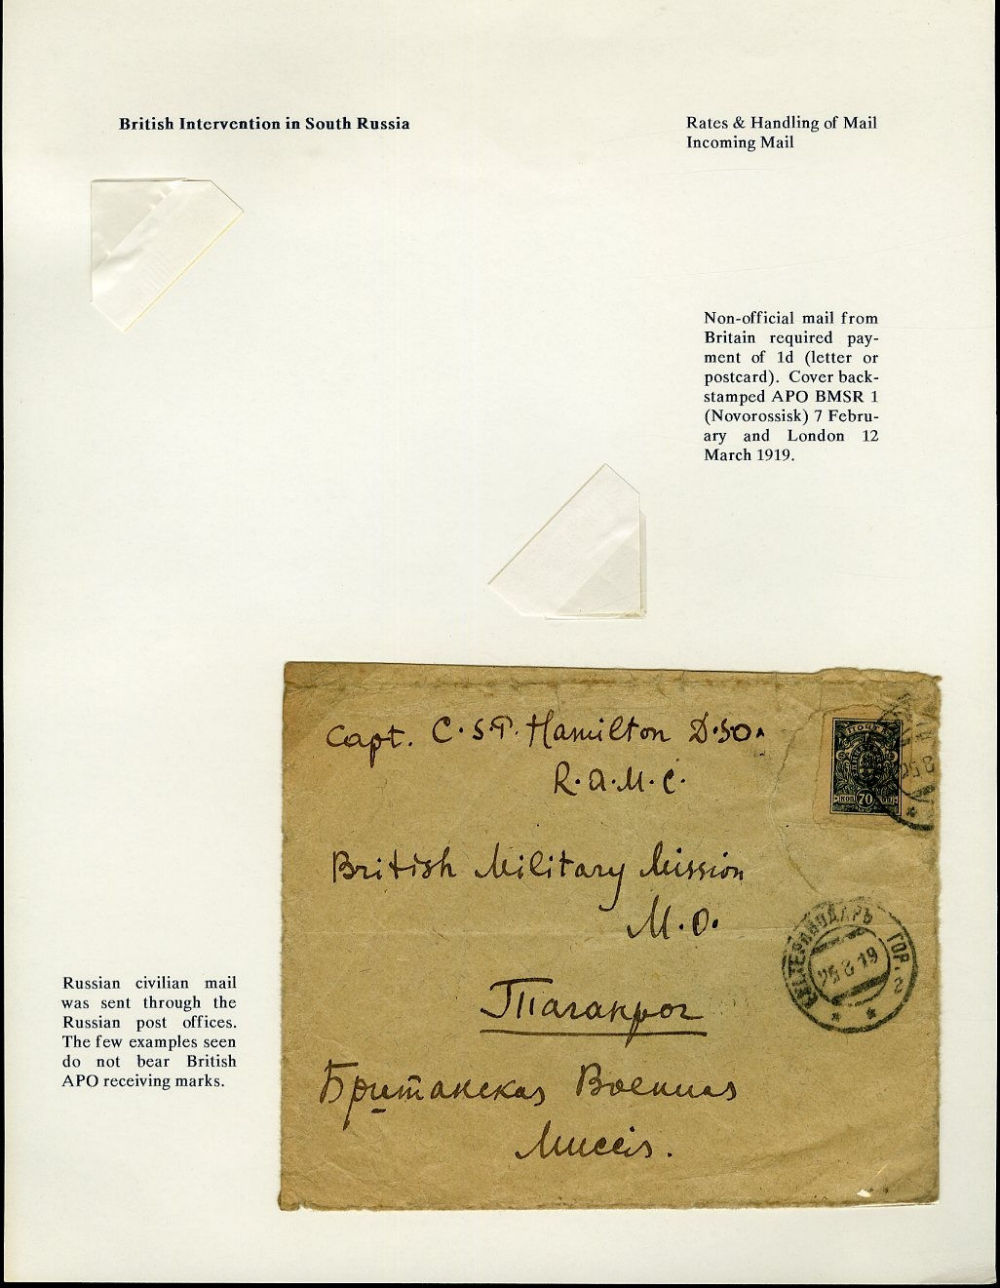 British Intervention in South Russia
Rates & Handling of Mail
Incoming Mail
Non-official mail from
Britain required pay-
ment of 1d (letter or
postcard). Cover back-
stamped APO BMSR 1
(Novorossisk) 7 Febru-
ary and London 12
March 1919.
Capt. C. S.P. Hamilton D.SO.
R.A.M.C.
British Military Mission
M.O.
Таганрог
Британская Военная
Миссія.
ПОЧТА
КОП 70 КОП
25 8
ЕКАТЕРИНОДАРЪ ГОР. 2
25 8 19
Russian civilian mail
was sent through the
Russian post offices.
The few examples seen
do not bear British
APO receiving marks.